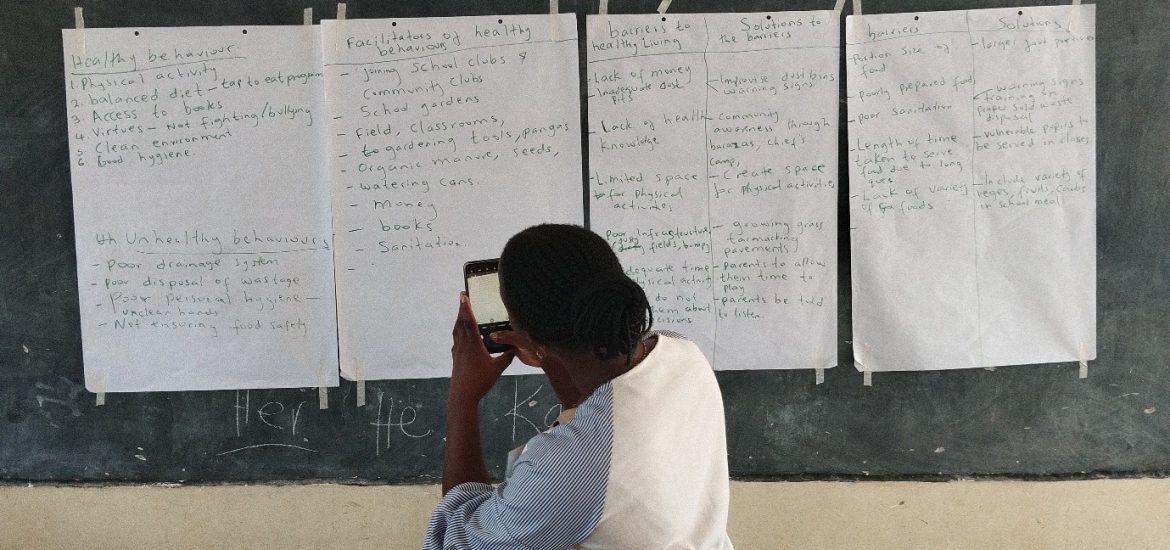 Healthy behaviour
1. Physical activity
2. balanced diet - tap to eat program
3. Access to books
4. Virtues - Not fighting/bullying
5. Clean environment
6. Good hygiene.
Unhealthy behaviours
- Poor drainage system
- Poor disposal of wastage
- Poor personal hygiene -
unclean hands
- Not ensuring food safety
Facilitators of healthy
behaviours
- Joining School clubs &
Community clubs
- School gardens
- Field, classrooms,
- gardening tools, pangas
- Organic manure, seeds,
- watering cans.
- Money
- books
- Sanitation
barriers to
healthy Living
- Lack of money
- Inadequate dust
pits
- Lack of health
knowledge
- Limited space
for physical
activities
Poor Infrastructure
fields, bumpy
time
do not
about
Solutions to
the barriers
- Improvise dust bins
- warning signs
- community
awareness through
barazas, chief's
camp,
- Create space
for physical activities
- growing grass
tarmacking
pavements)
- parents to allow
them time to
play
- parents be told
to listen.
barriers
Portion size of
food
- Poorly prepared food
- Poor sanitation
- Length of time
taken to serve
food due to long
ques
- Lack of variety
of foods
Solutions
- larger
- warning signs
training on
proper solid waste
disposal
- vulnerable pupils to
be served in classes
- Include variety of
veges, fruits, carbs
in school meal
Her
He